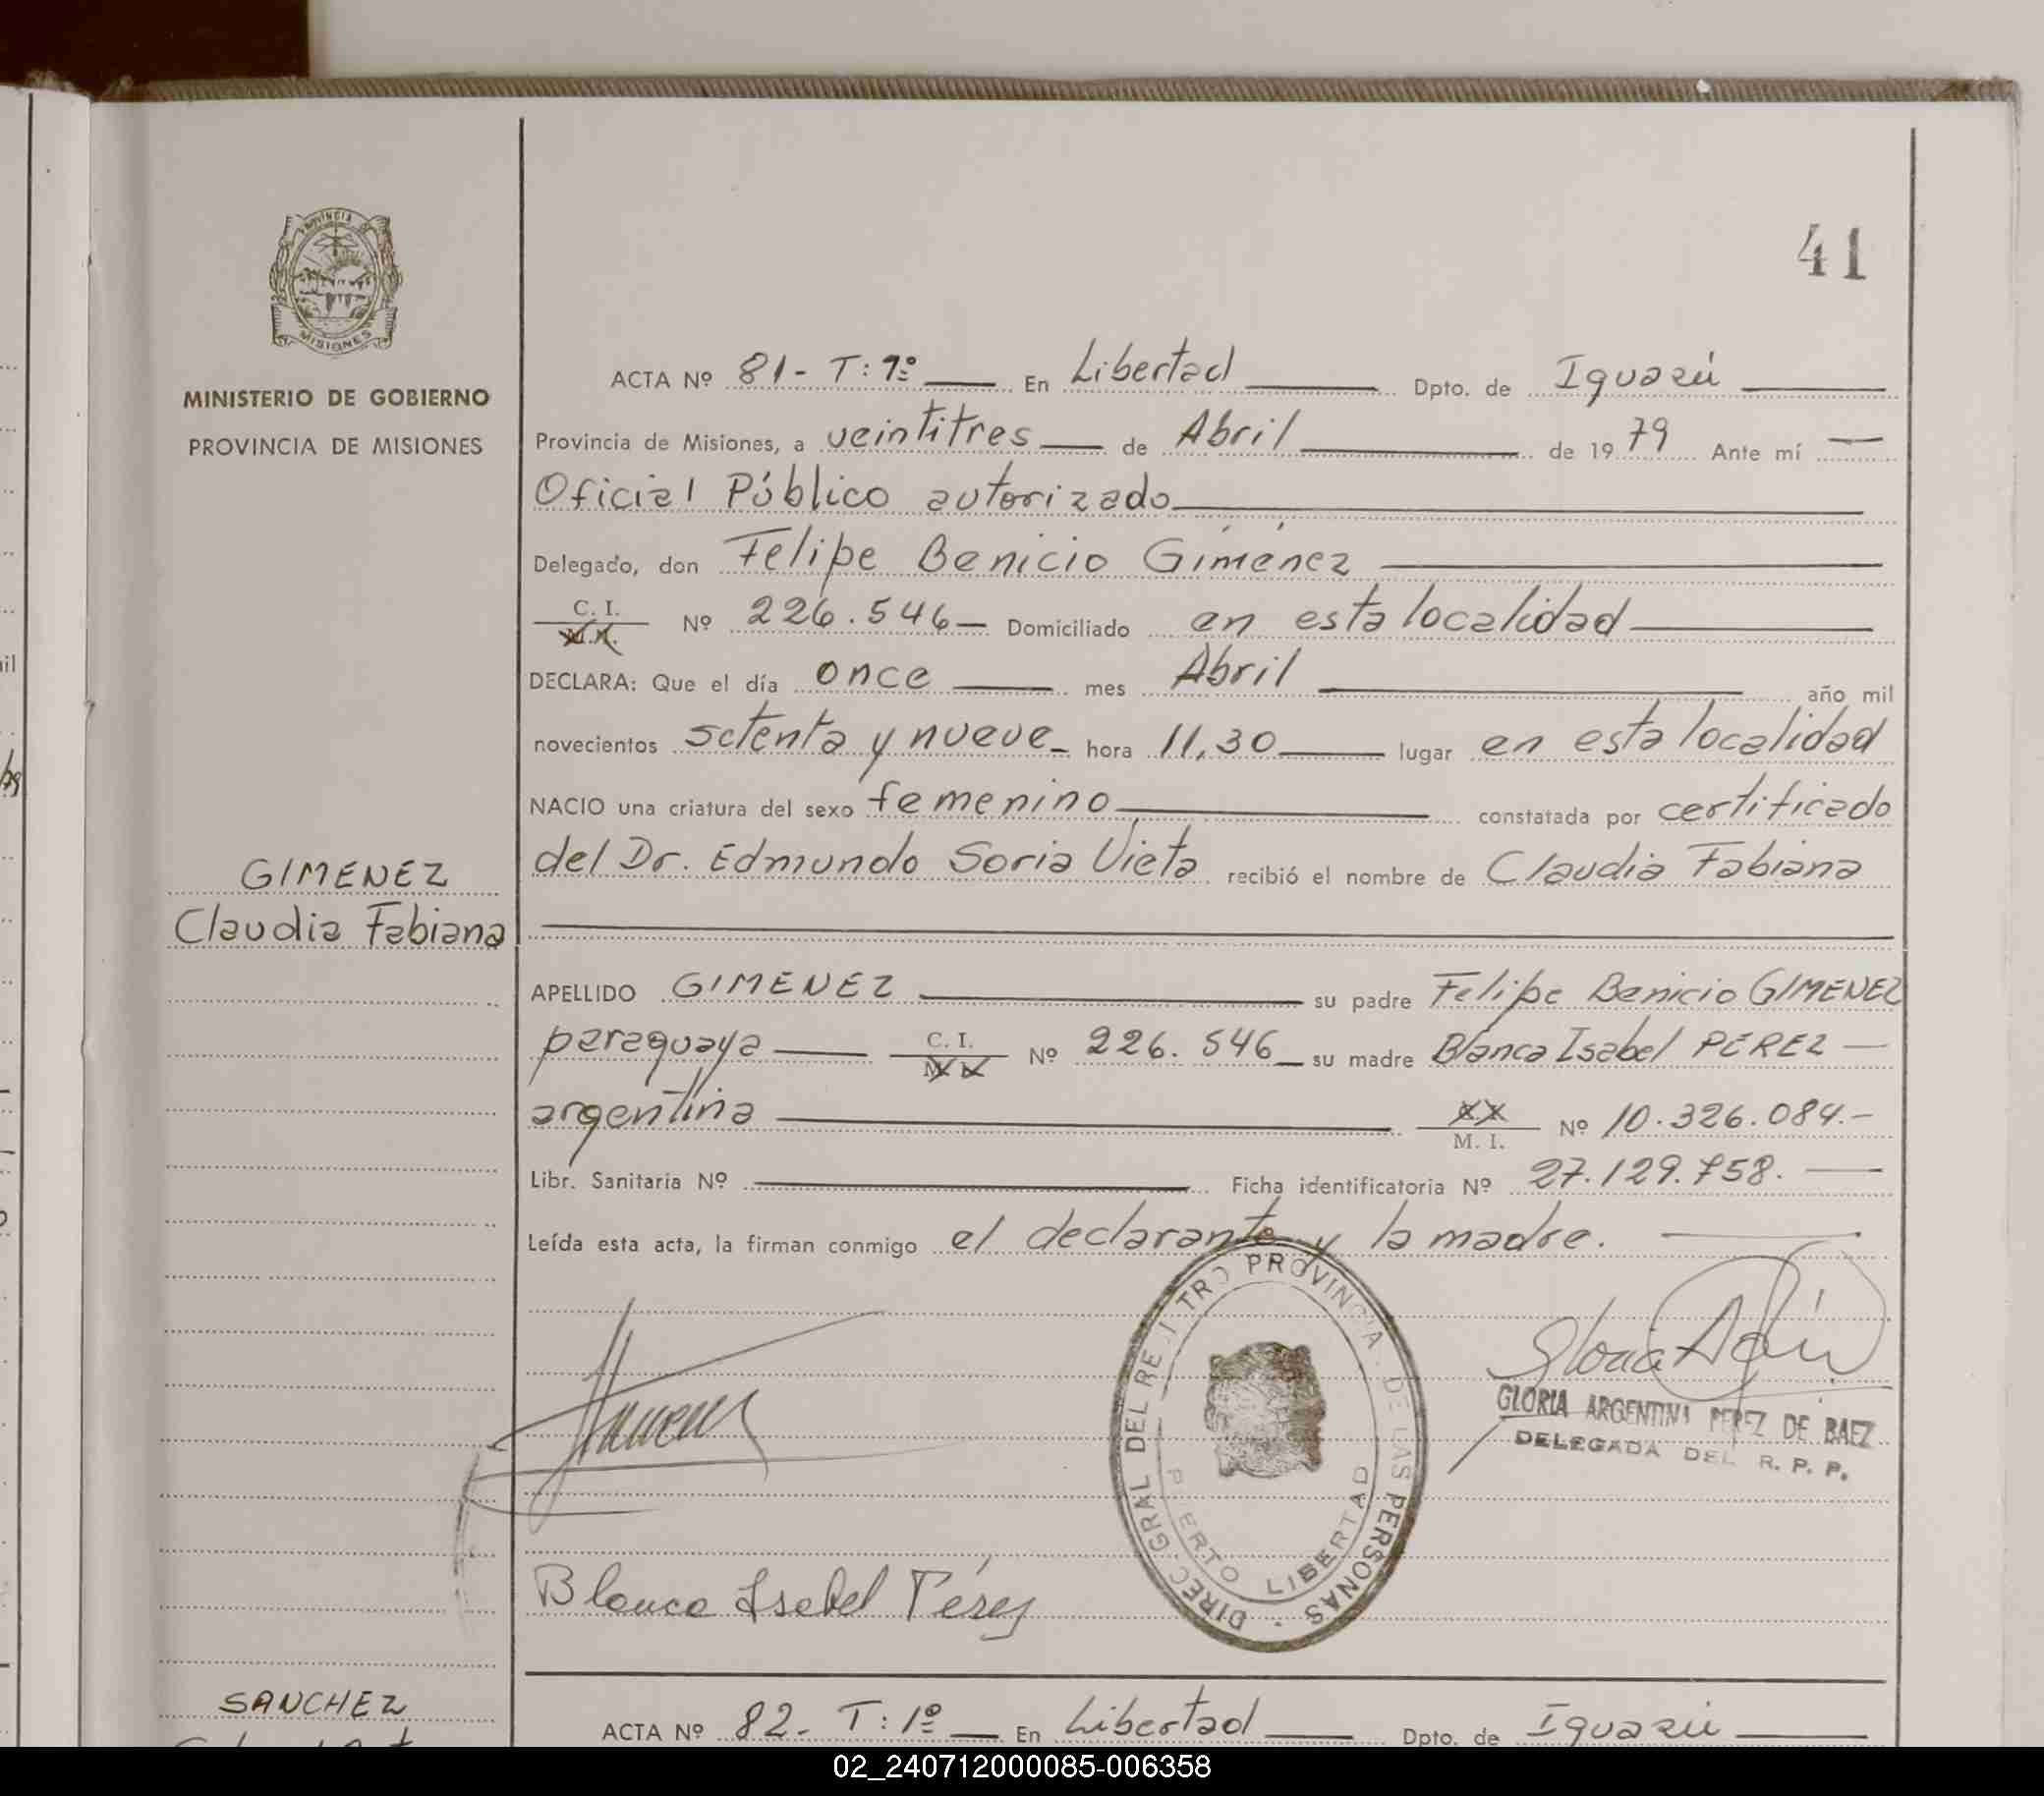 41
PROVINCIA
MISIONES
MINISTERIO DE GOBIERNO
PROVINCIA DE MISIONES
ACTA Nº 81- T: 1º En Libertad Dpto. de Iguazú
Provincia de Misiones, a veintitres de Abril de 1979 Ante mí
Oficial Público autorizado
Delegado, don Felipe Benicio Giménez
C. I. Nº 226.546 Domiciliado en esta localidad
DECLARA: Que el día once mes Abril año mil
novecientos setenta y nueve hora 11,30 lugar en esta localidad
NACIO una criatura del sexo femenino constatada por certificado
del Dr. Edmundo Soria Vieta recibió el nombre de Claudia Fabiana
GIMENEZ
Claudia Fabiana
APELLIDO GIMENEZ su padre Felipe Benicio GIMENEZ
paraguaya C. I. Nº 226.546 su madre Blanca Isabel PEREZ
argentina M. I. Nº 10.326.084.-
Libr. Sanitaria Nº Ficha identificatoria Nº 27.129.758.
Leída esta acta, la firman conmigo el declarante y la madre.
DIREC. GRAL DEL RE I TRO PROVINCIA DE LAS PERSONAS
P ERTO LIBERTAD
GLORIA ARGENTINA PEREZ DE BAEZ
DELEGADA DEL R. P. P.
Blanca Isabel Pérez
SANCHEZ
ACTA Nº 82- T: 1º En Libertad Dpto. de Iguazú
02_240712000085-006358